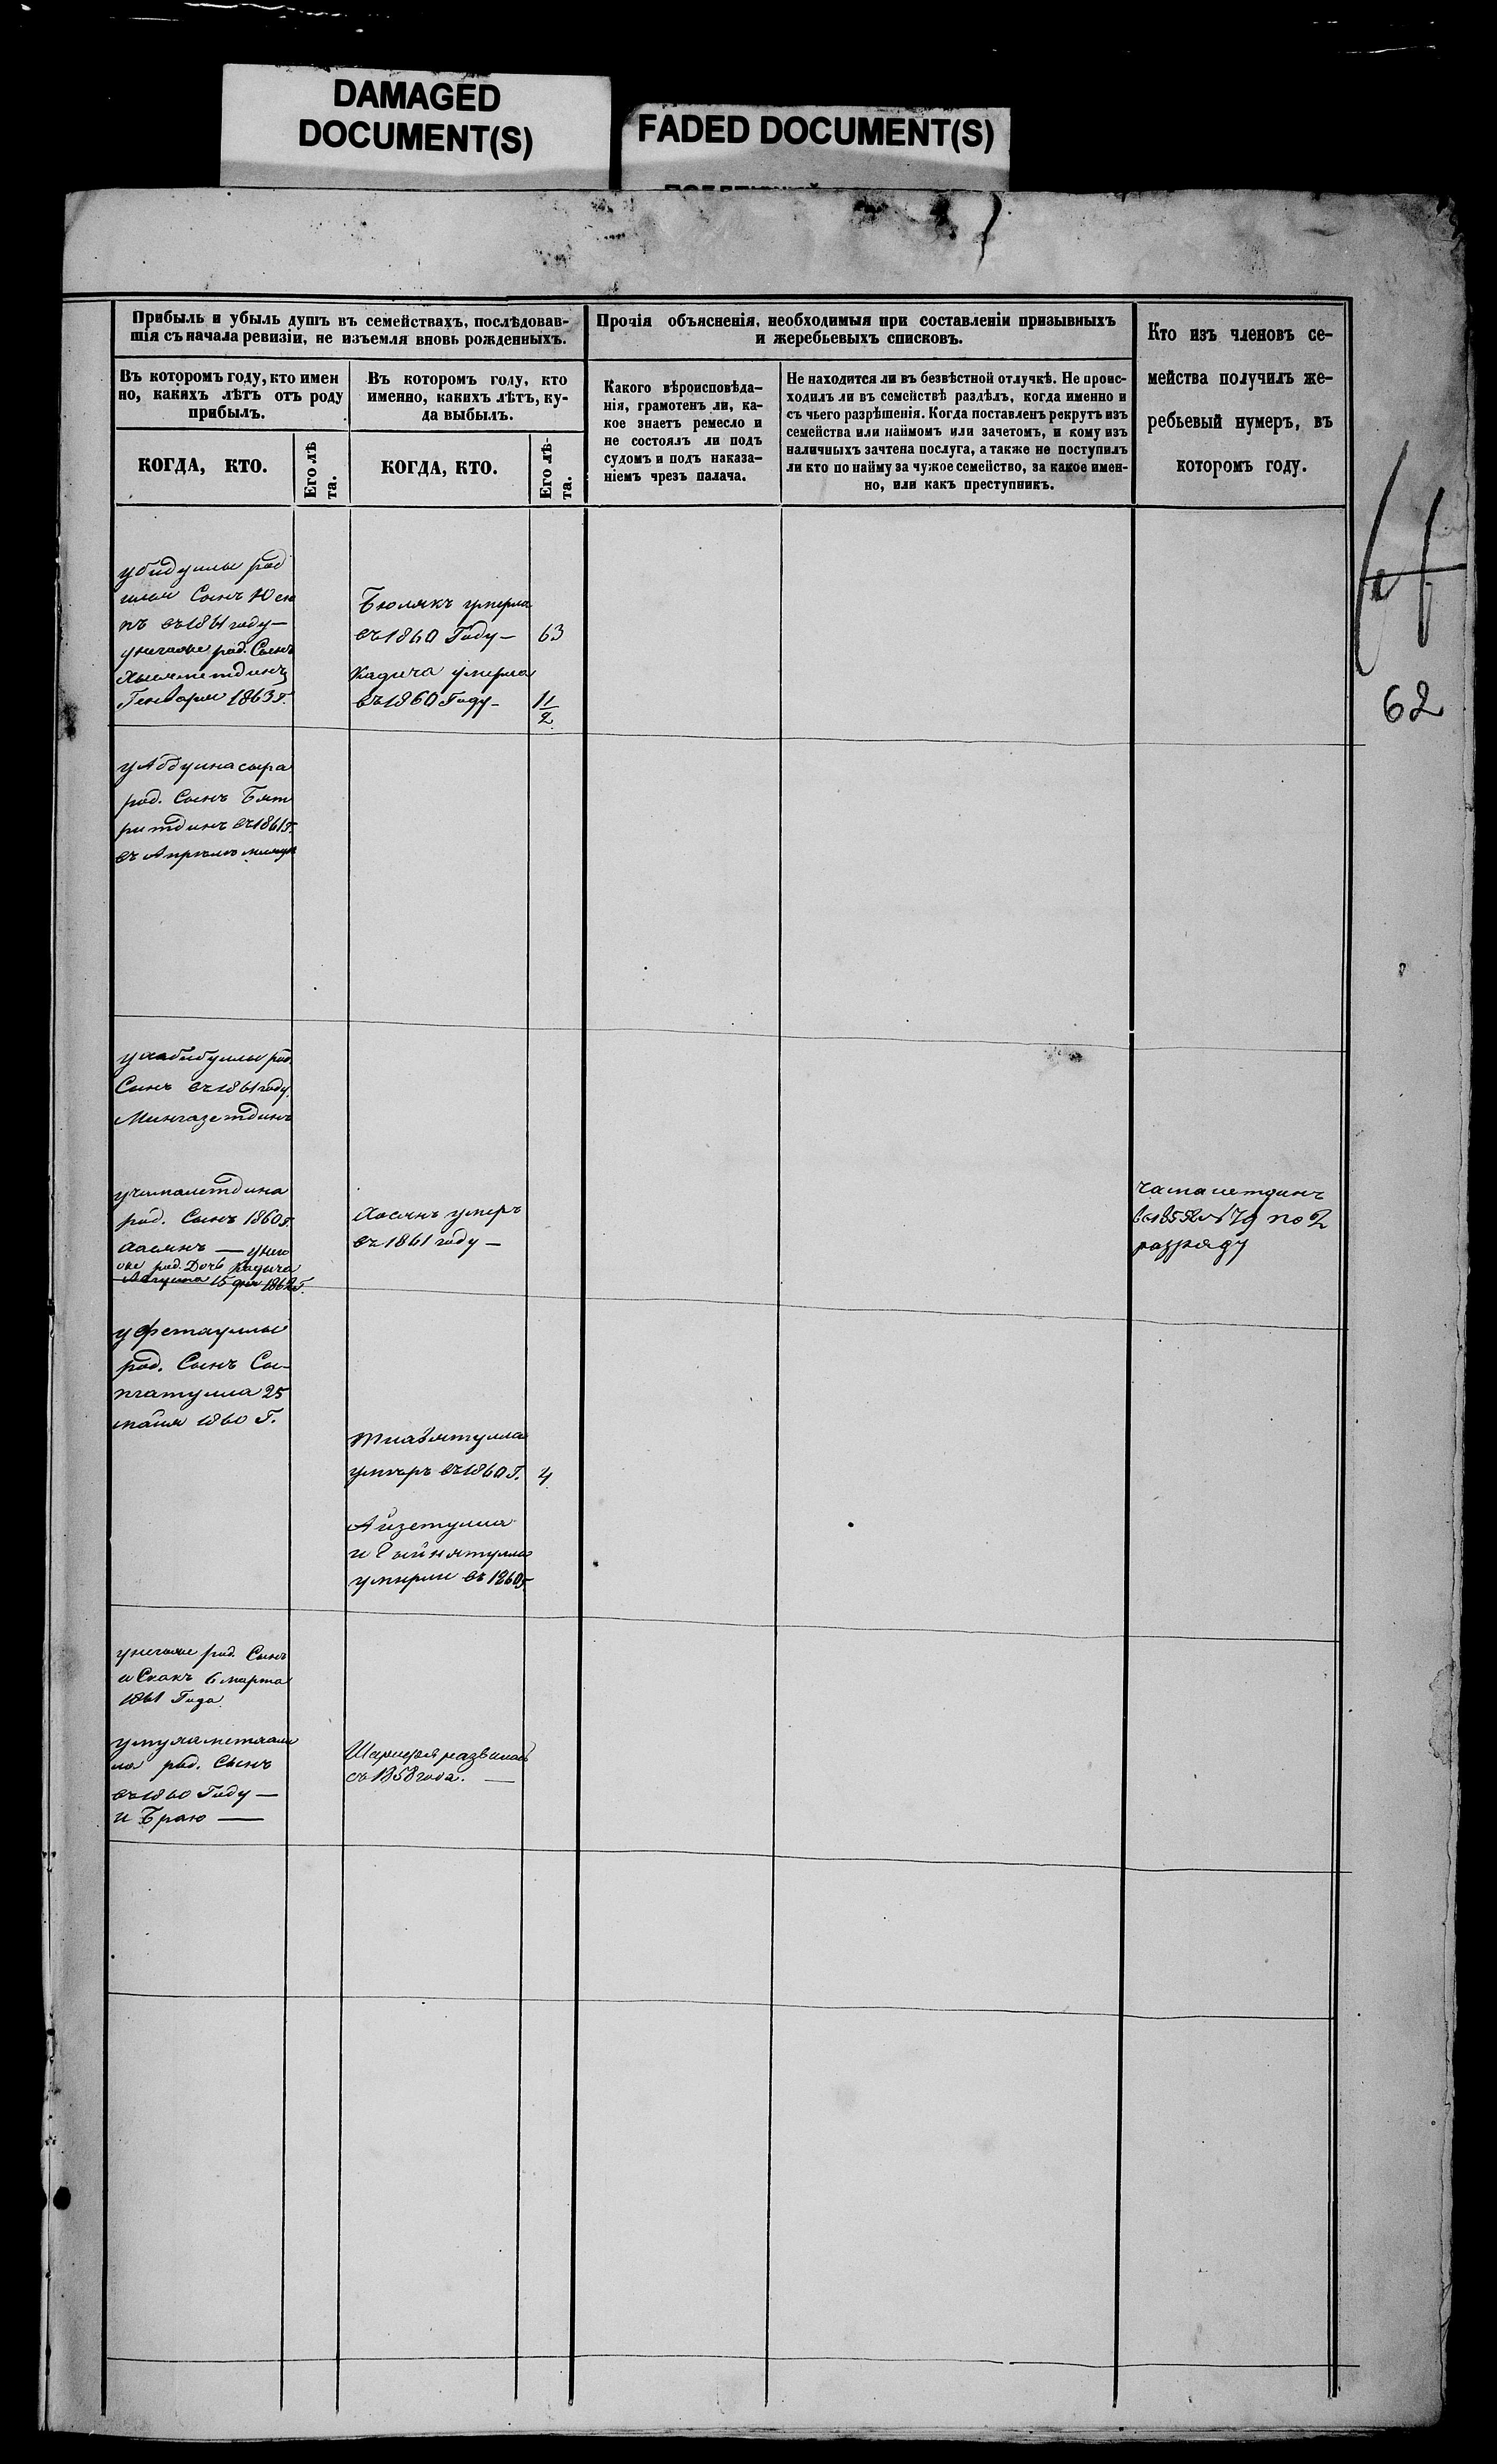 DAMAGED
DOCUMENT(S)
FADED DOCUMENT(S)
Прибыль и убыль душъ въ семействахъ, послѣдовав-
шія съ начала ревизіи, не изъемля вновь рожденныхъ.
Прочія объясненія, необходимыя при составленіи призывныхъ
и жеребьевыхъ списковъ.
Кто изъ членовъ се-
мейства получилъ же-
ребьевый нумеръ, въ
которомъ году.
Въ которомъ году, кто имен
но, какихъ лѣтъ отъ роду
прибылъ.
Въ которомъ году, кто
именно, какихъ лѣтъ, ку-
да выбылъ.
Какого вѣроисповѣда-
нія, грамотенъ ли, ка-
кое знаетъ ремесло и
не состоялъ ли подъ
судомъ и подъ наказа-
ніемъ чрезъ палача.
Не находится ли въ безвѣстной отлучкѣ. Не проис-
ходилъ ли въ семействѣ раздѣлъ, когда именно и
съ чьего разрѣшенія. Когда поставленъ рекрутъ изъ
семейства или наймомъ или зачетомъ, и кому изъ
наличныхъ зачтена послуга, а также не поступилъ
ли кто по найму за чужое семейство, за какое имен-
но, или какъ преступникъ.
КОГДА, КТО.
Его лѣ
та.
КОГДА, КТО.
Его лѣ-
та.
62
убидуллы род
Сынъ Юсю
пъ въ 1861 году —
унегоже род. Сынъ
Генваря 1863 г.
Бюлякъ умерла
въ 1860 Году — 63
Кадича умерла
въ 1860 Году — 11/2
у Абдуннасыра
род. Сынъ Бят
ритдинъ въ 1861 г.
въ Апрѣлѣ
ухабибуллы род.
Сынъ въ 1861 году
Мингазетдинъ
род. Сынъ 1860 г.
Хасянъ — унего
же род. Дочь Кадича
Августа 15 дня 1862 г.
Хасянъ умеръ
въ 1861 году —
№ 79 по 2
разряду
у Фетхуллы
род. Сынъ Си-
25
маія 1860 Г.
умеръ въ 1860 Г. 4
Айзетулла
и Гайнятулла
умерли въ 1860 г.
унегоже род. Сынъ
и Скакъ 6 марта
1861 Года
род. Сынъ
въ 1860 Году —
и Браю —
съ 1858 года. —